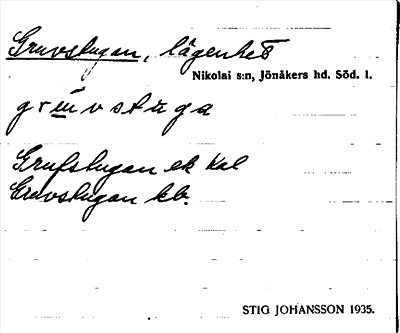 Gruvstugan, lägenhet
Nikolai s:n, Jönåkers hd. Söd. l.
grúvstuga
Grufstugan ek Kal
Gruvstugan kb.
STIG JOHANSSON 1935.